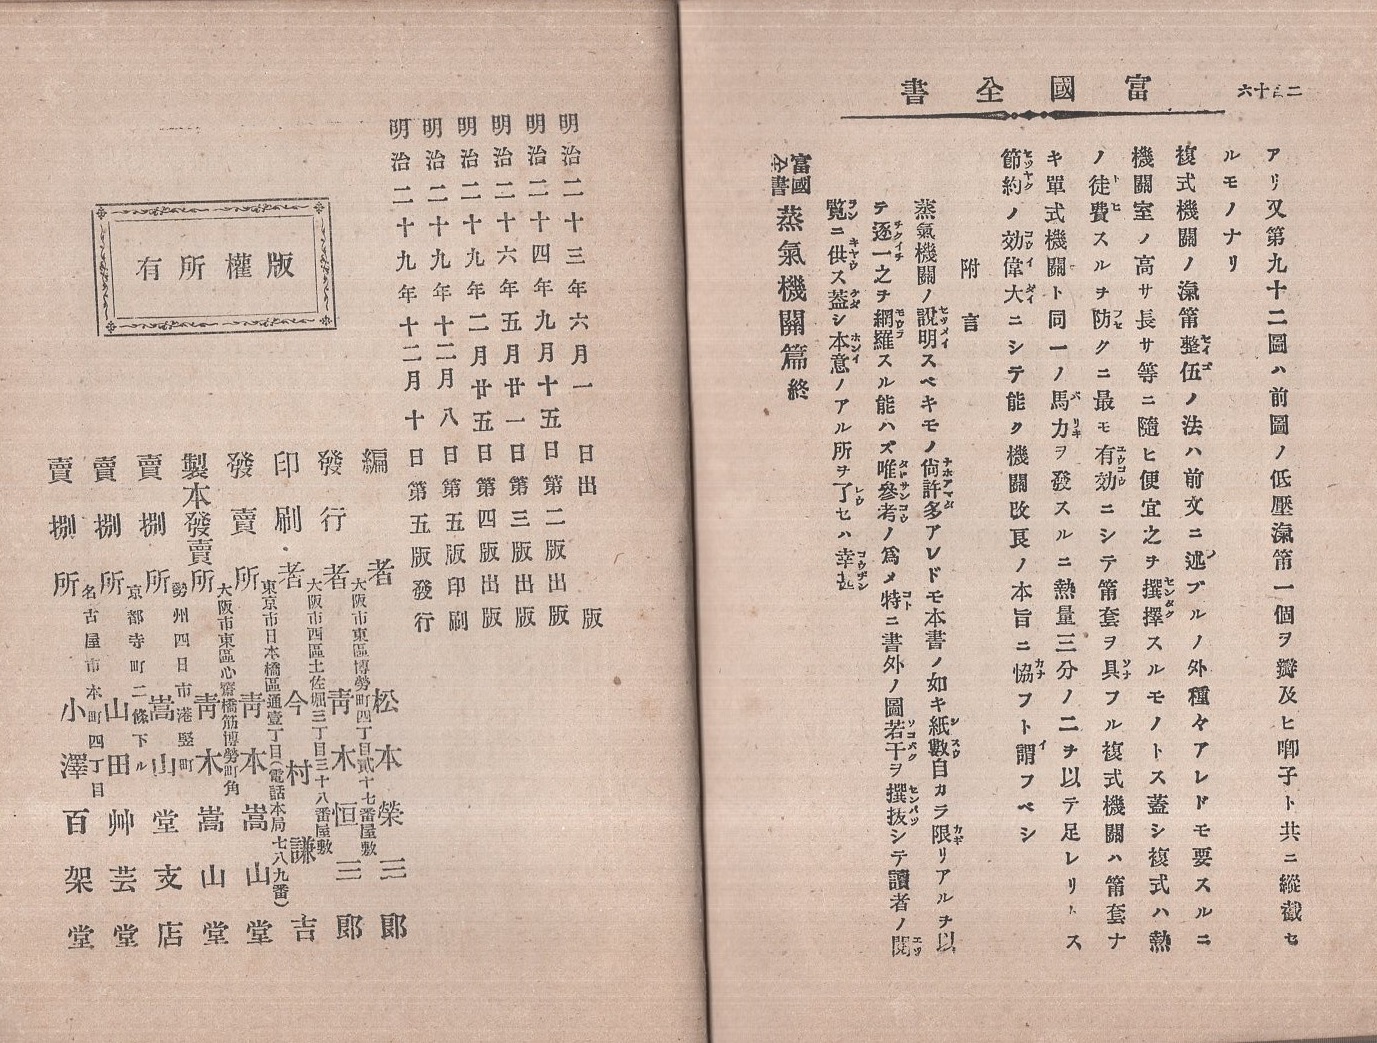 二百十六
富國全書
アリ又第九十二圖ハ前圖ノ低壓滊筩一個ヲ瓣及ヒ喞子ト共ニ縱截セ
ルモノナリ
複式機關ノ滊筩整伍ノ法ハ前文ニ述ブルノ外種々アレドモ要スルニ
機關室ノ高サ長サ等ニ隨ヒ便宜之ヲ撰擇スルモノトス蓋シ複式ハ熱
ノ徒費スルヲ防クニ最モ有効ニシテ筩套ヲ具フル複式機關ハ筩套ナ
キ單式機關ト同一ノ馬力ヲ發スルニ熱量三分ノ二ヲ以テ足レリトス
節約ノ効偉大ニシテ能ク機關改良ノ本旨ニ協フト謂フベシ
附言
蒸氣機關ノ說明スベキモノ尙許多アレドモ本書ノ如キ紙數自カラ限リアルヲ以
テ逐一之ヲ網羅スル能ハズ唯參考ノ爲メ特ニ書外ノ圖若干ヲ撰抜シテ讀者ノ閱
覽ニ供ス蓋シ本意ノアル所ヲ了セハ幸甚
富國全書 蒸氣機關篇終
明治二十三年六月一日出版
明治二十四年九月十五日第二版出版
明治二十六年五月廿一日第三版出版
明治二十九年二月廿五日第四版出版
明治二十九年十二月八日第五版印刷
明治二十九年十二月十日第五版發行
版權所有
編者 松本榮三郎
大阪市東區博勞町四丁目貳十七番屋敷
發行者 靑木恒三郎
大阪市西區土佐堀三丁目三十八番屋敷
印刷者 今村謙吉
東京市日本橋區通壹丁目(電話本局七八九番)
發賣所 靑木嵩山堂
大阪市東區心齋橋筋博勞町角
製本發賣所 靑木嵩山堂
勢州四日市港竪町
賣捌所 嵩山堂支店
京都寺町二條下ル
賣捌所 山田艸芸堂
名古屋市本町四丁目
賣捌所 小澤百架堂